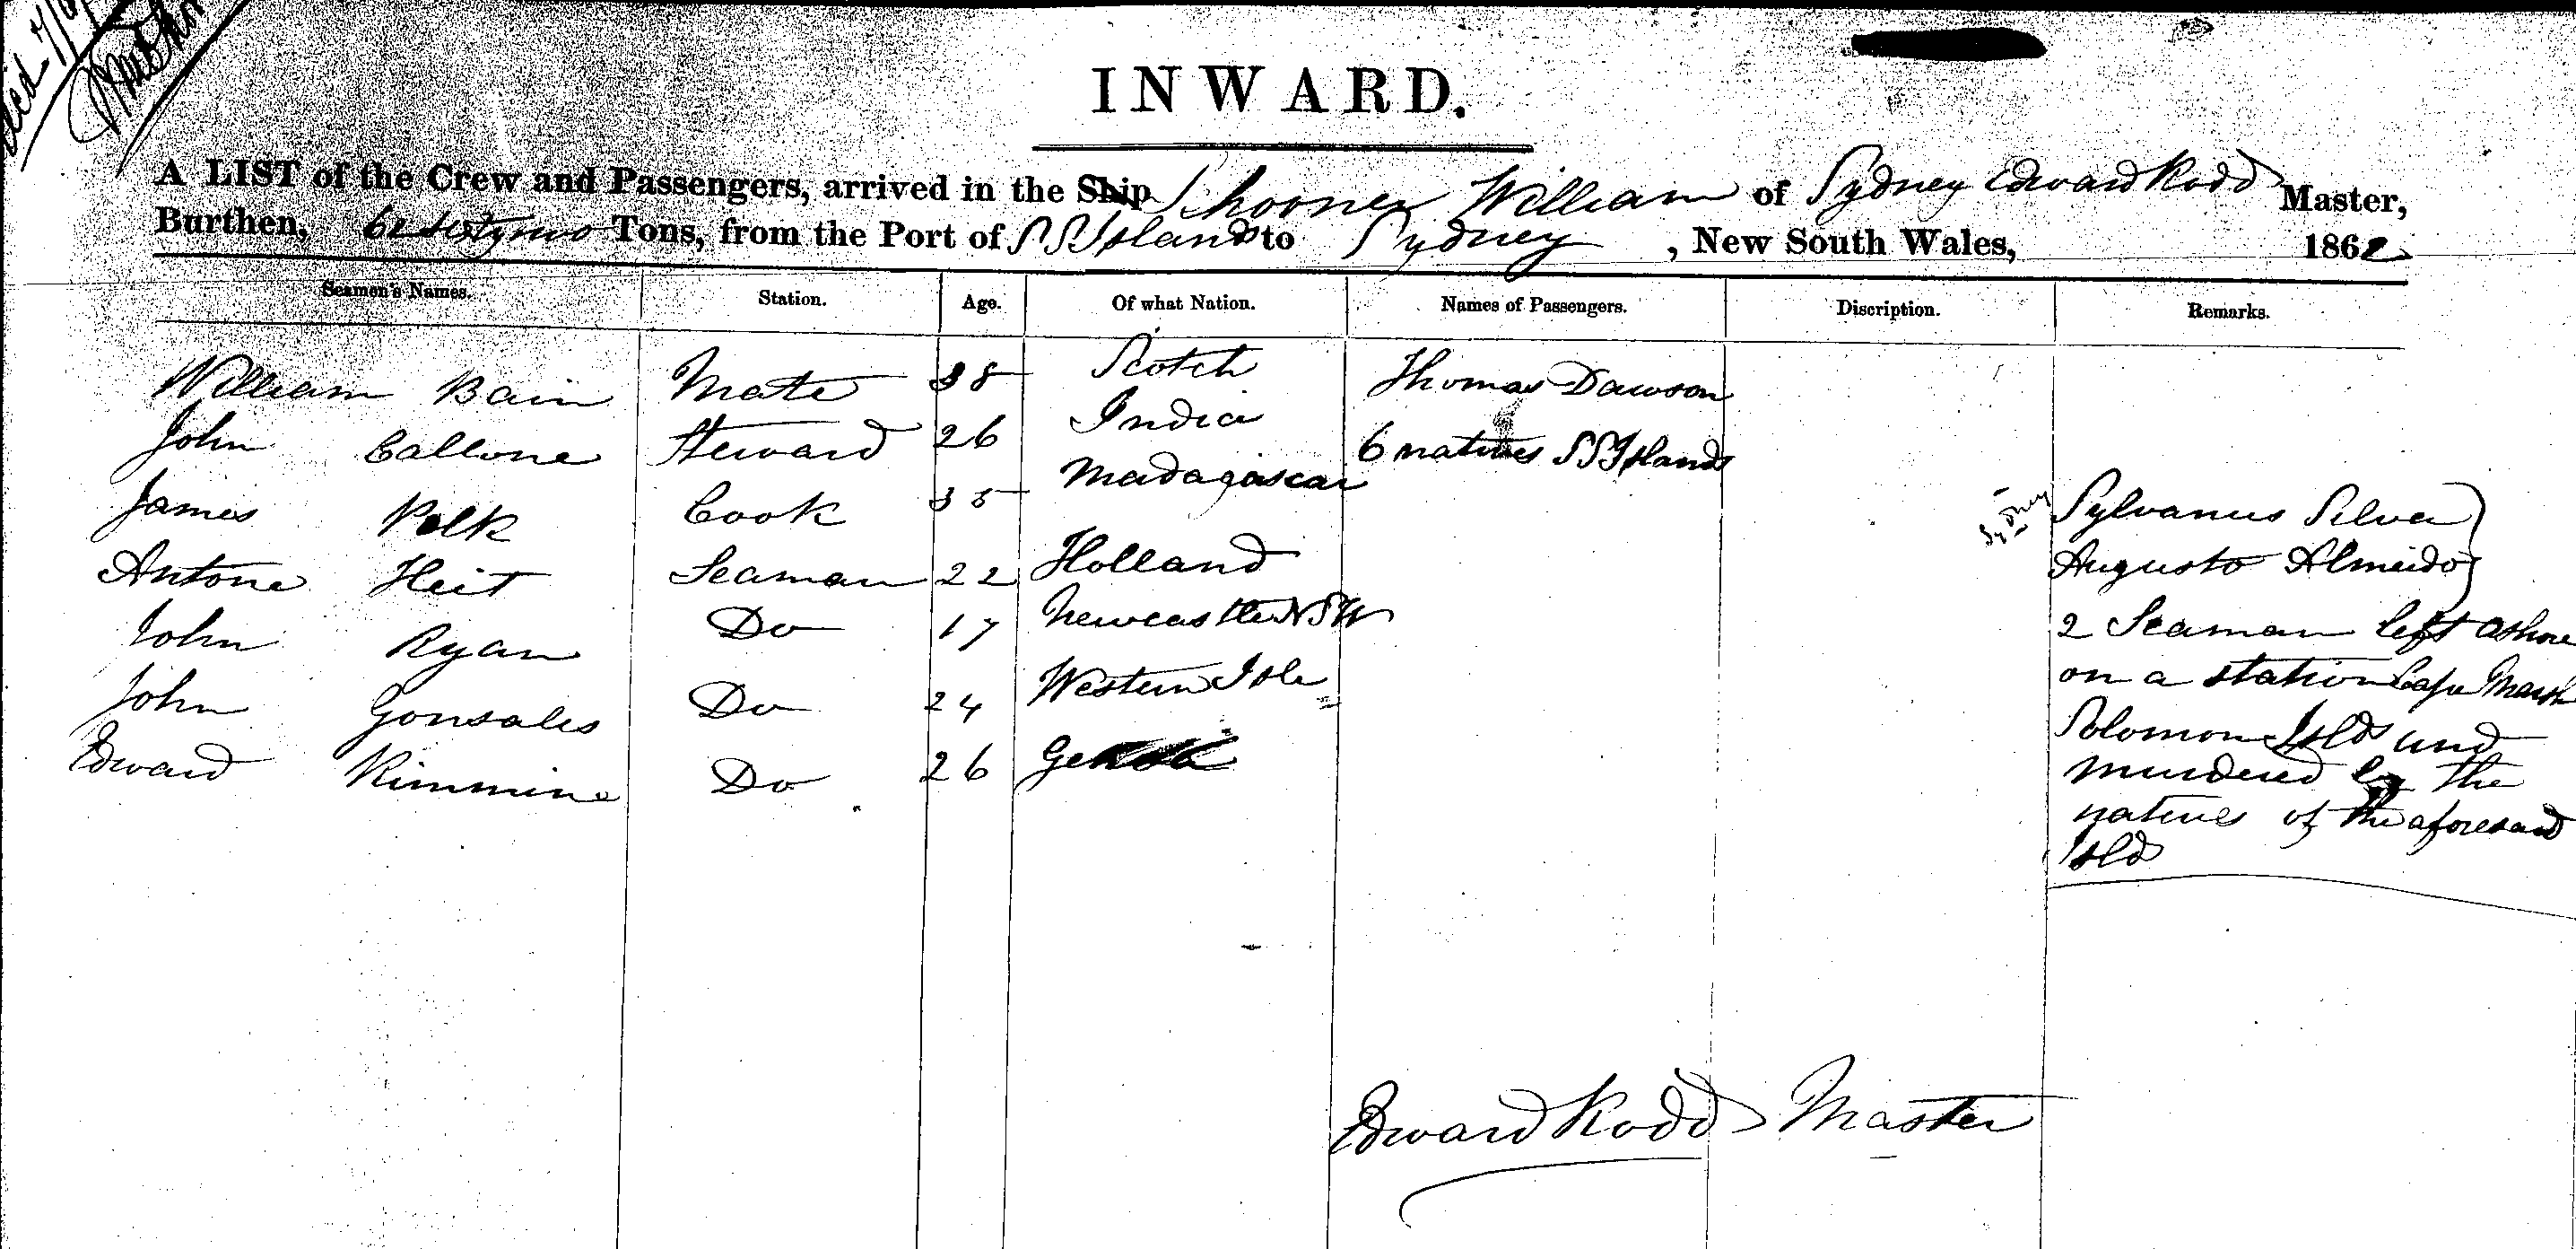 INWARD.
A LIST of the Crew and Passengers, arrived in the Ship Schooner William of Sydney Edward Rodd Master,
Burthen, 62 sixty two Tons, from the Port of S S Islands to Sydney, New South Wales, 1862
Seamen's Names. Station. Age. Of what Nation. Names of Passengers. Discription. Remarks.
William Bain Mate 38 Scotch Thomas Dawson
John Callone Steward 26 India 6 natives S S Islands
James Polk Cook 35 Madagascar
Antone Heit Seaman 22 Holland
John Ryan Do 17 Newcastle NSW
John Gonsales Do 24 Western Isle
Edward Kimmine Do 26
Sydney
Sylvanus Silva
Augusto Almeido
2 Seaman left ashore
on a station Cape Marsh
Solomon Islds and
murdered by the
natives of the aforesaid
Isld
Edward Rodd Master